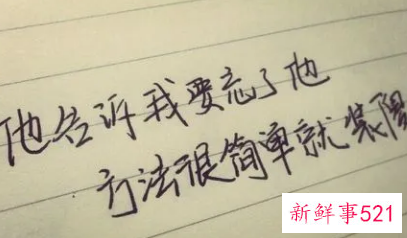 他告诉我要忘了他
方法很简单就装陌
新鲜事521